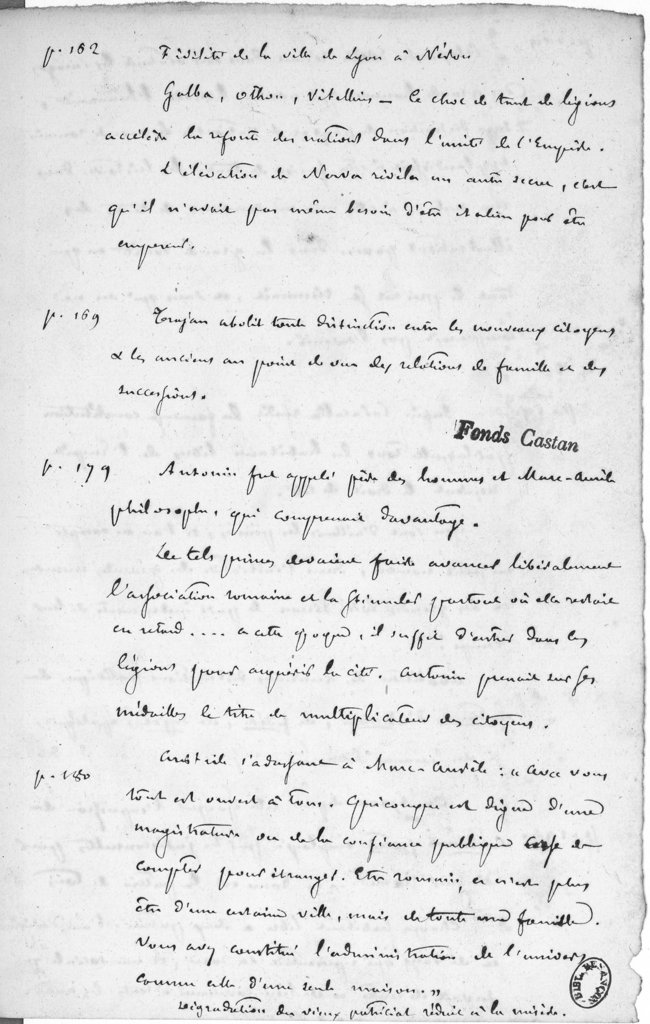 p. 162 Fidélité de la ville de Lyon à Néron
Galba, Othon, Vitellius — Le choc de tant de légions
accélère la refonte des nations dans l'unité de l'Empire.
L'élévation de Nerva révéla un autre secret, c'est
qu'il n'avait pas même besoin d'être italien pour être
empereur.
p. 169 Trajan abolit toute distinction entre les nouveaux citoyens
& les anciens au point de vue des relations de famille et des
successions.
Fonds Castan
p. 179 Antonin fut appelé père des hommes et Marc-Aurèle
philosophe, qui comprenait davantage.
De tels princes devaient faire avancer libéralement
l'association romaine et la stimuler partout où elle restait
en retard.... à cette époque, il suffit d'entrer dans les
légions pour acquérir la cité. Antonin prenait sur ses
médailles le titre de multiplicateur des citoyens.
p. 180 Aristide s'adressant à Marc-Aurèle : « Avec vous
tout est ouvert à tous. Quiconque est digne d'une
magistrature ou de la confiance publique cesse de
compter pour étranger. Etre romain, ce n'est plus
être d'une certaine ville, mais de toute une famille.
Vous avez constitué l'administration de l'univers
comme celle d'une seule maison. »
Dégradation du vieux patriciat réduit à la misère.